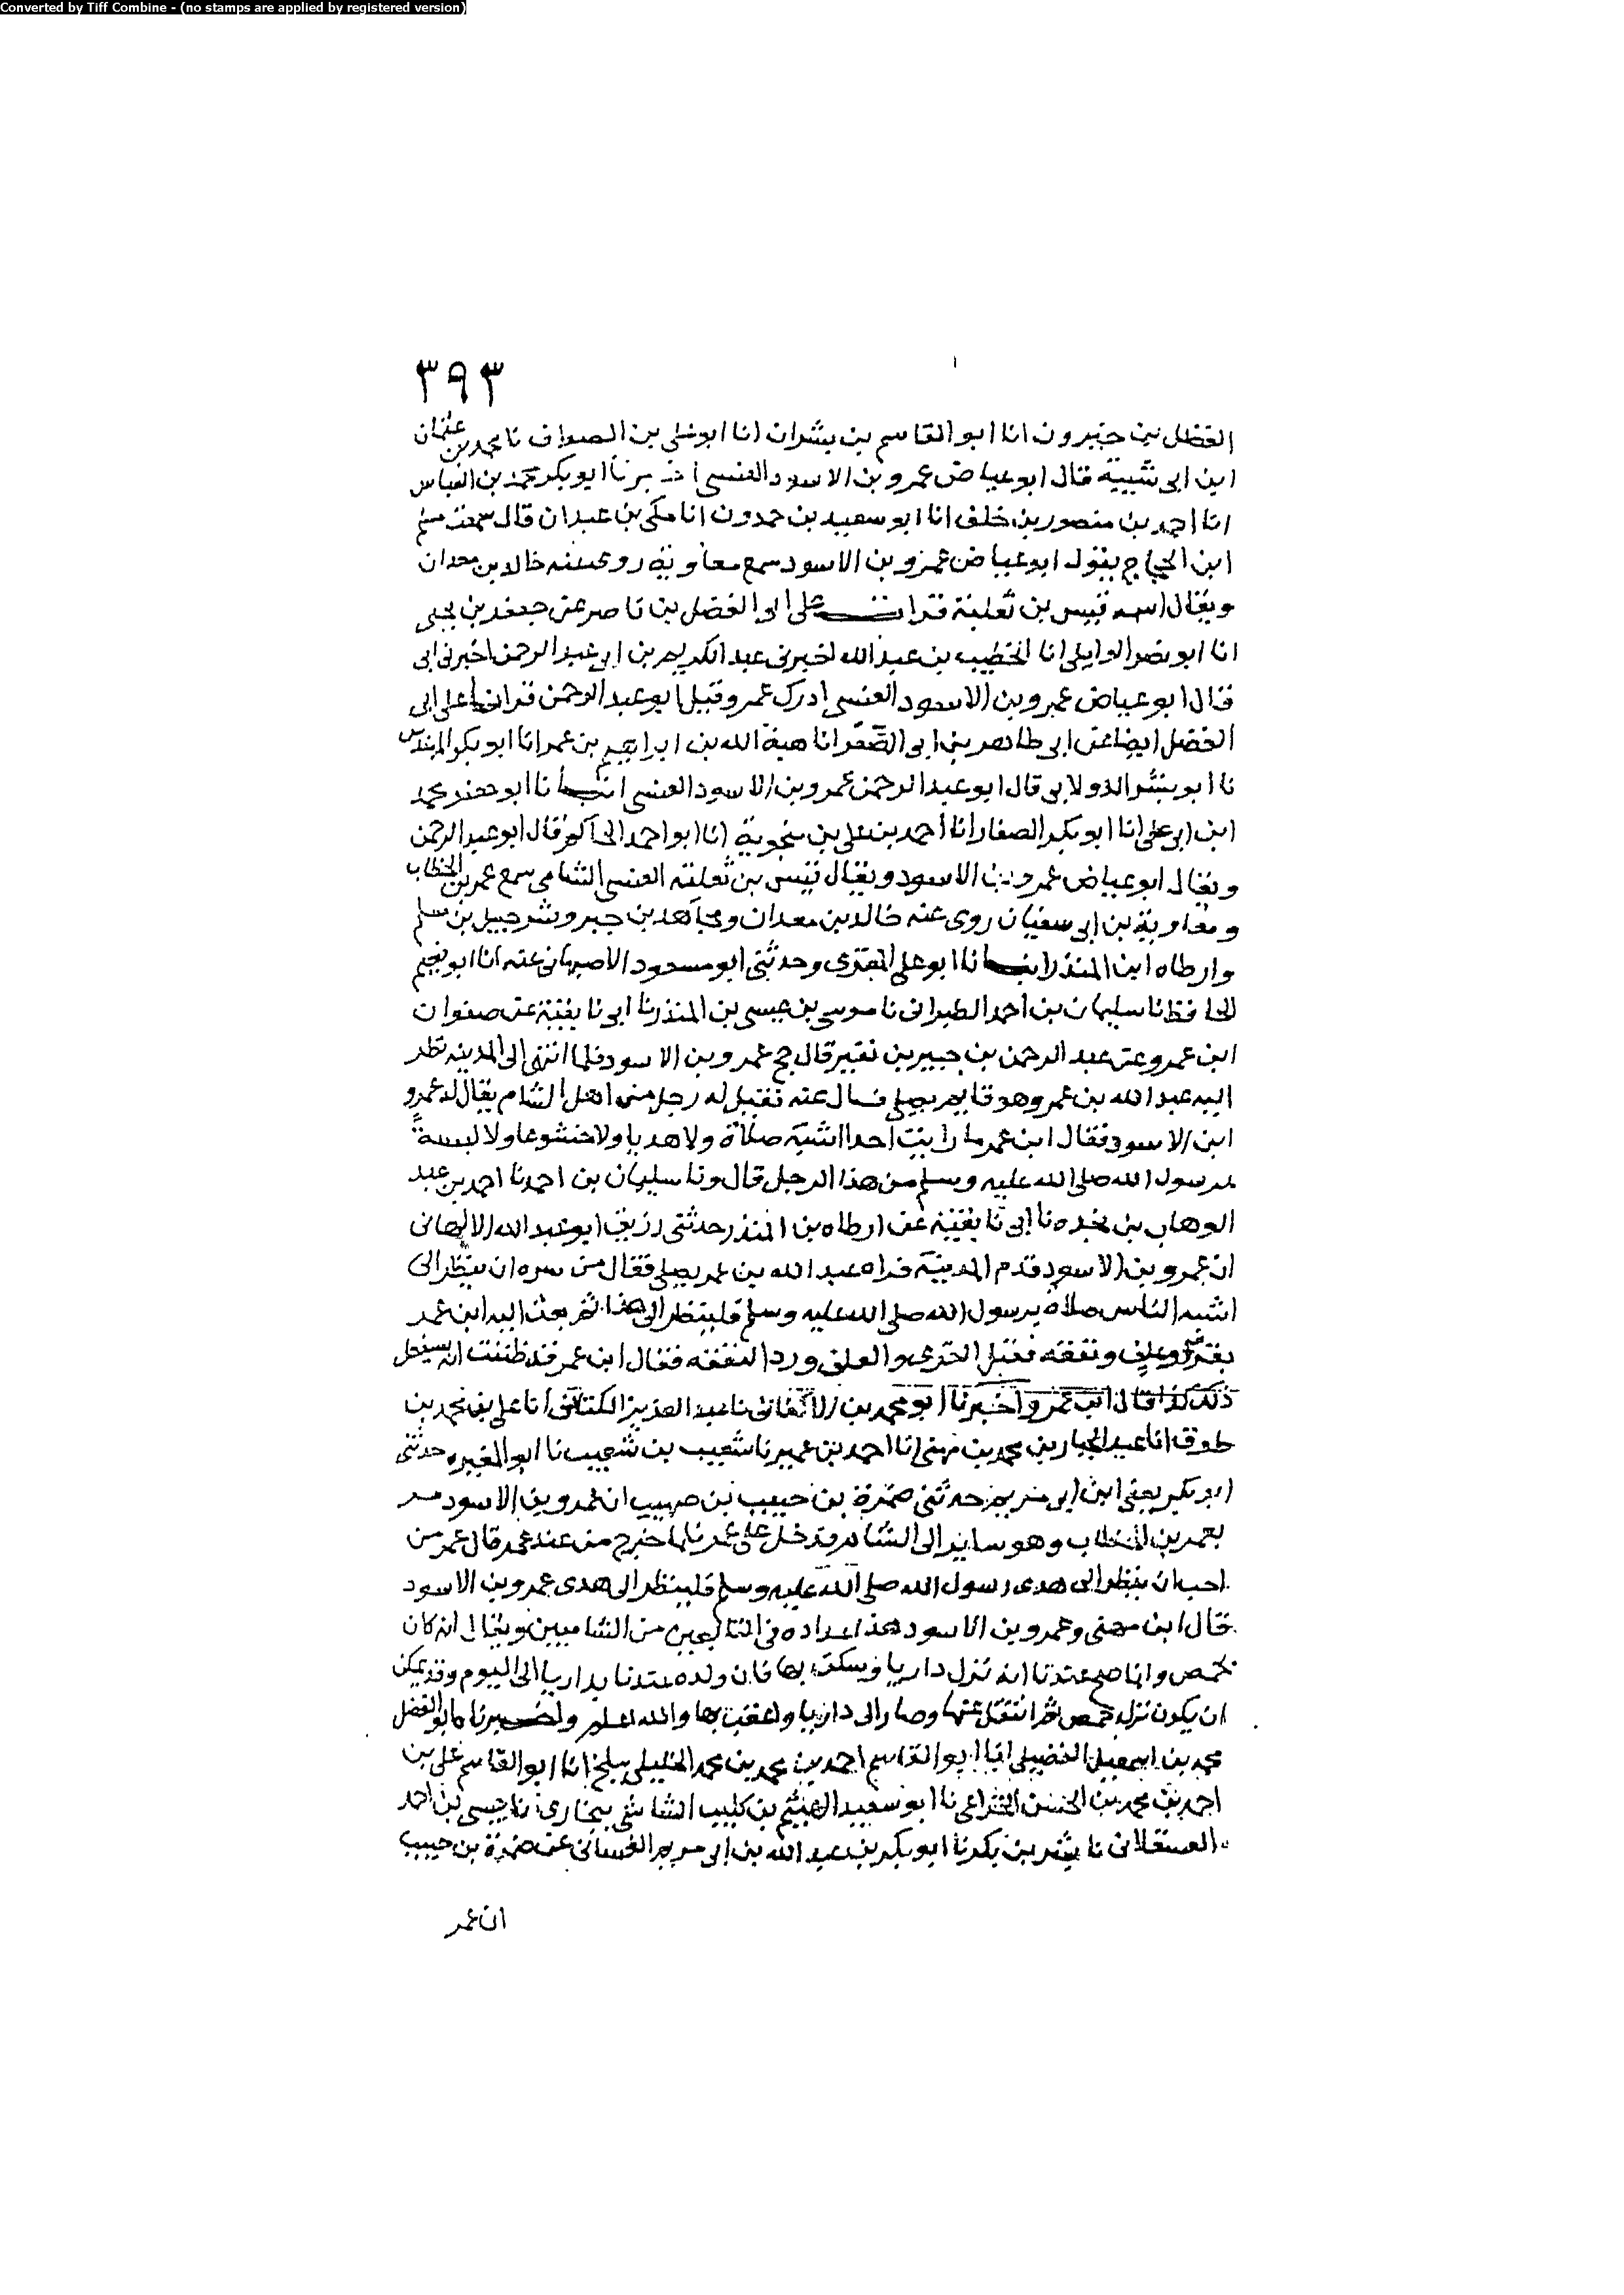 Converted by Tiff Combine - (no stamps are applied by registered version)
٣٩٣
الفضل بن خيرون انا ابو القاسم بن بشران انا ابو علي بن الصواف نا محمد بن عثمان
ابن ابي شيبة قال ابو عياض عمرو بن الاسود العنسي اخبرنا ابو بكر محمد بن العباس
انا احمد بن منصور بن خلف انا ابو سعيد بن حمدون انا مكي بن عبدان قال سمعت مسلم
ابن الحجاج يقول ابو عياض عمرو بن الاسود سمع معاوية روى عنه خالد بن معدان
ويقال اسمه قيس بن ثعلبة قرات على ابي الفضل بن ناصر عن جعفر بن يحيى
انا ابو نصر الوايلي انا الخطيب بن عبد الله اخبرني عبد الكريم بن ابي عبد الرحمن اخبرني ابي
قال ابو عياض عمرو بن الاسود العنسي ادرك عمر وقيل ابو عبد الرحمن قرانا على ابي
الفضل ايضا عن ابي طاهر بن ابي الصقر انا هبة الله بن ابراهيم بن عمر انا ابو بكر المهندس
نا ابو بشر الدولابي قال ابو عبد الرحمن عمرو بن الاسود العنسي انبانا ابو جعفر محمد
ابن ابي علي انا ابو بكر الصفار انا احمد بن علي بن منجوية انا ابو احمد الحاكم قال ابو عبد الرحمن
ويقال ابو عياض عمرو بن الاسود ويقال قيس بن ثعلبة العنسي الشامي سمع عمر بن الخطاب
ومعاوية بن ابي سفيان روى عنه خالد بن معدان ومجاهد بن جبر وشرحبيل بن مسلم
وارطاه ابن المنذر انبانا ابو علي المقري وحدثني ابو مسعود الاصبهاني عنه انا ابو نعيم
الحافظ نا سليمان بن احمد الطبراني نا موسى بن عيسى بن المنذر نا ابي نا بقية عن صفوان
ابن عمرو عن عبد الرحمن بن جبير بن نفير قال حج عمرو بن الاسود فلما انتهى الى المدينه نظر
اليه عبد الله بن عمر وهو قايم يصلي فسال عنه فقيل له رجل من اهل الشام يقال له عمرو
ابن الاسود فقال ابن عمر ما رايت احدا اشبه صلاة ولا هديا ولا خشوعا ولا لبسة
برسول الله صلى الله عليه وسلم من هذا الرجل قال ونا سليمان بن احمد نا احمد بن عبد
الوهاب بن نجده نا ابي نا بقية عن ارطاه بن المنذر حدثني رزيق ابو عبد الله الالهاني
ان عمرو بن الاسود قدم المدينة فراه عبد الله بن عمر يصلي فقال من سره ان ينظر الى
اشبه الناس صلاة برسول الله صلى الله عليه وسلم فلينظر الى هذا ثم بعث اليه ابن عمر
بقرى وعلف ونفقه فقبل القرى والعلف ورد النفقه فقال ابن عمر قد ظننت انه سيفعل
ذلك كذا قال ابن عمر واخبرنا ابو محمد بن الاكفاني نا عبد العزيز الكتاني انا علي بن محمد بن
طوق انا عبد الجبار بن محمد بن مهنى انا احمد بن عمير نا شعيب بن شعيب نا ابو المغيره حدثني
ابو بكر يعني ابن ابي مريم حدثني ضمرة بن حبيب بن صهيب ان عمرو بن الاسود مر
بعمر بن الخطاب وهو ساير الى الشام فدخل على عمر فلما خرج من عند عمر قال عمر من
احب ان ينظر الى هدى رسول الله صلى الله عليه وسلم فلينظر الى هدى عمرو بن الاسود
قال ابن مهنى وعمرو بن الاسود هذا عداده في التابعين من الشاميين ويقال انه كان
بحمص وانما صح عندنا انه نزل داريا وسكن بها فان ولده عندنا بداريا الى اليوم وقد يمكن
ان يكون نزل حمص ثم انتقل عنها وصار الى داريا واعقب بها والله اعلم واخبرنا ابو الفضل
محمد بن اسمعيل الفضيلي انا ابو القاسم احمد بن محمد بن محمد الخليلي ببلخ انا ابو القاسم علي بن
احمد بن محمد بن الحسن الخزاعي نا ابو سعيد الهيثم بن كليب الشاشي ببخارى نا عيسى بن احمد
العسقلاني نا بشر بن بكر نا ابو بكر بن عبد الله بن ابي مريم الغساني عن ضمرة بن حبيب
ان عمر